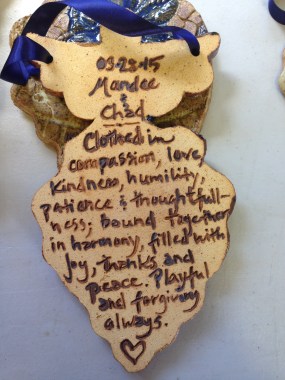 03-28-15
Mandee
&
Chad
Clothed in
compassion, love,
kindness, humility,
patience & thoughtfull-
ness, bound together
in harmony, filled with
joy, thanks and
peace. Playful
and forgiving
always.